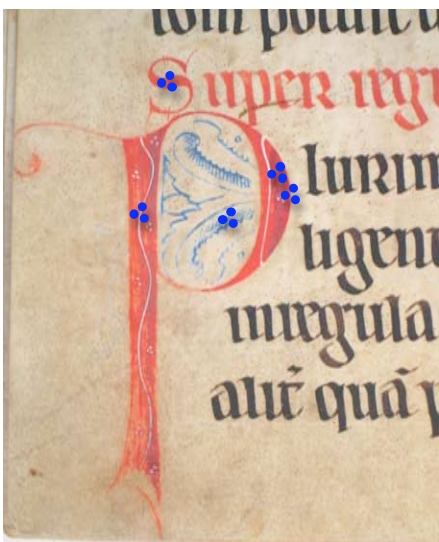 Super regu
Plurim
ligent
inregula
aut̃ quã p